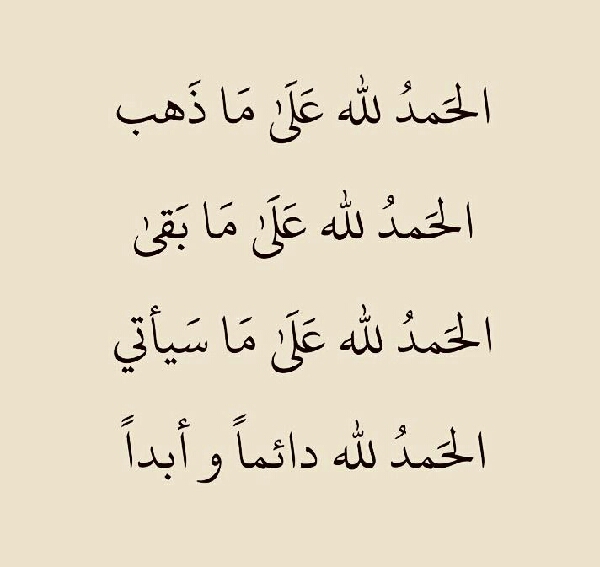 الحَمدُ لله عَلَىٰ مَا ذَهب
الحَمدُ لله عَلَىٰ مَا بَقىٰ
الحَمدُ لله عَلَىٰ مَا سَيأتي
الحَمدُ لله دائماً و أبداً